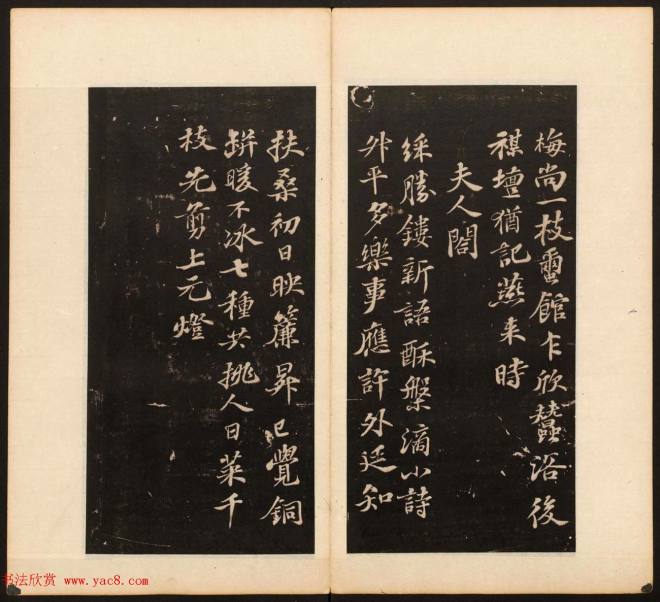 梅尚一枝蠒館乍欣蠶浴後
禖壇猶記燕来時
夫人閣
綵勝鏤新語酥槃滴小詩
昇平多樂事應許外廷知
扶桑初日映簾昇已覺銅
缾暖不冰七種共挑人日菜千
枝先剪上元燈
书法欣赏 www.yac8.com